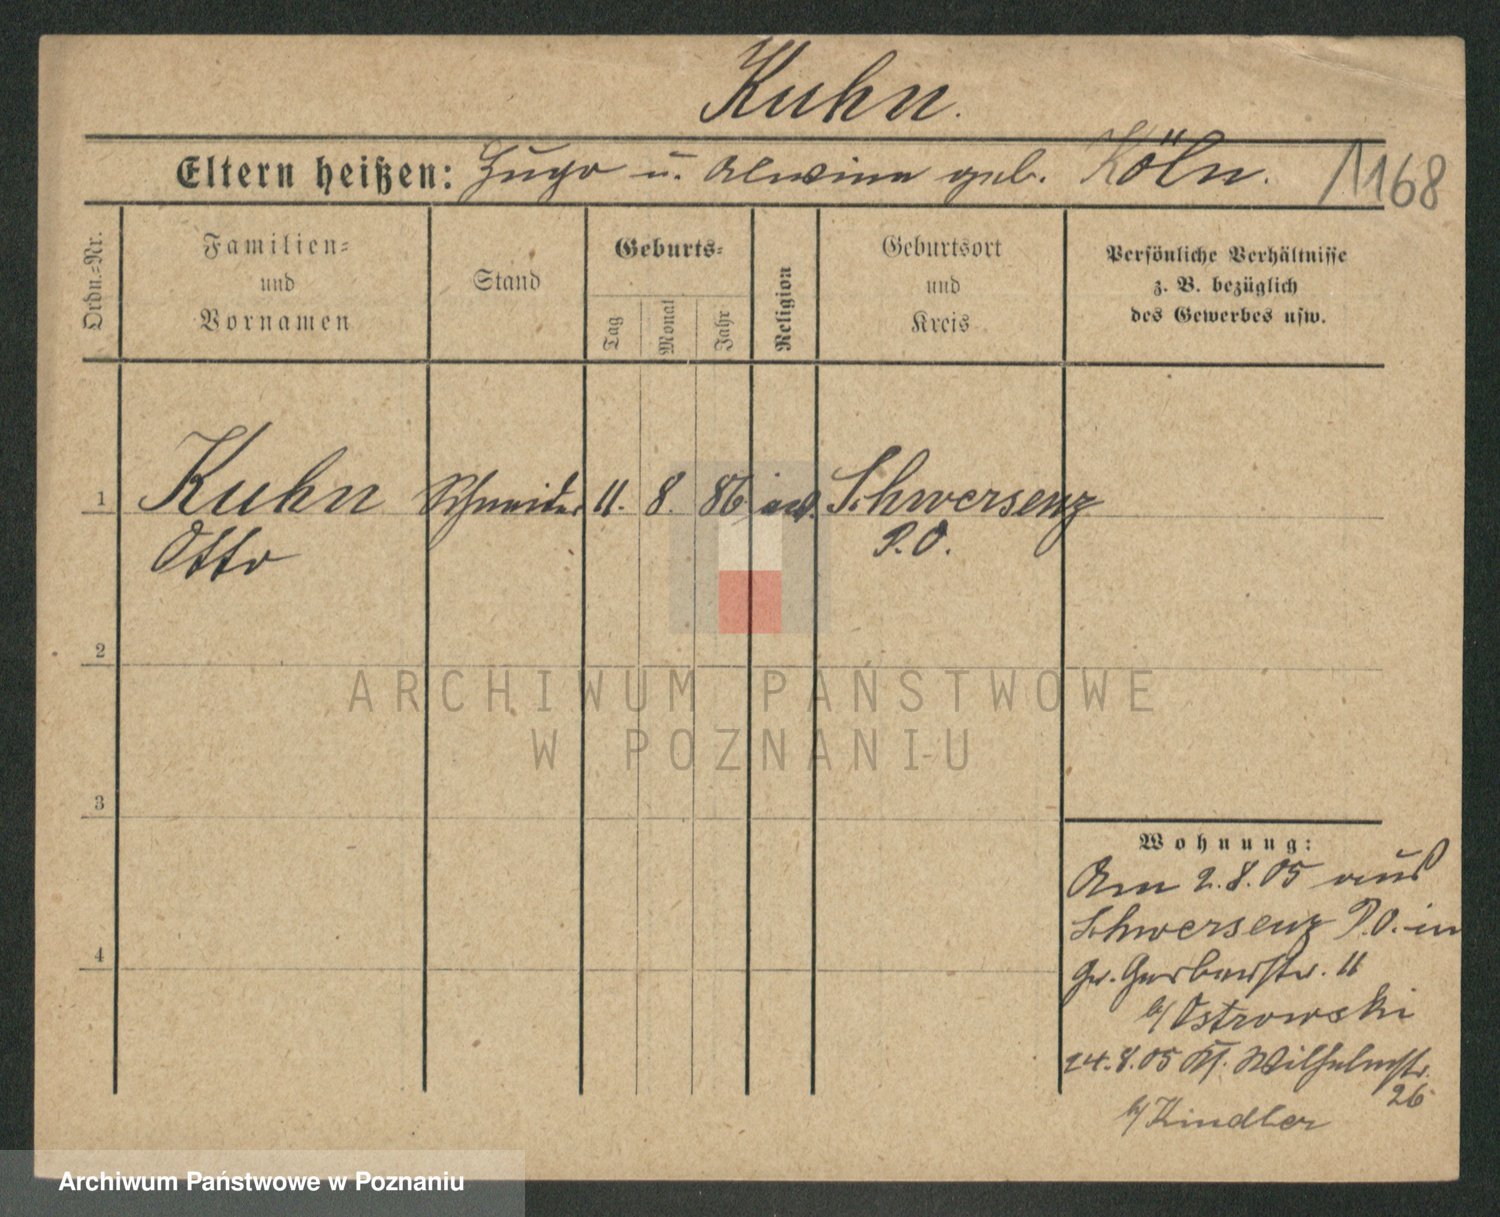 Kuhn.
Eltern heißen: Hugo u. Alwine geb. Köln.
1168
Ordn.-Nr.
Familien-
und
Vornamen
Stand
Geburts-
Tag
Monat
Jahr
Religion
Geburtsort
und
Kreis
Persönliche Verhältnisse
z. B. bezüglich
des Gewerbes usw.
1 Kuhn Schneider 11. 8. 86 Schwersenz
Otto P.O.
2
3
4
ARCHIWUM PAŃSTWOWE
W POZNANIU
Wohnung:
Am 2.8.05 aus
Schwersenz P.O. in
Gr. Gerberstr. 11
b/ Ostrowski
24.8.05 Wilhelmstr.
26
b/ Kindler
Archiwum Państwowe w Poznaniu